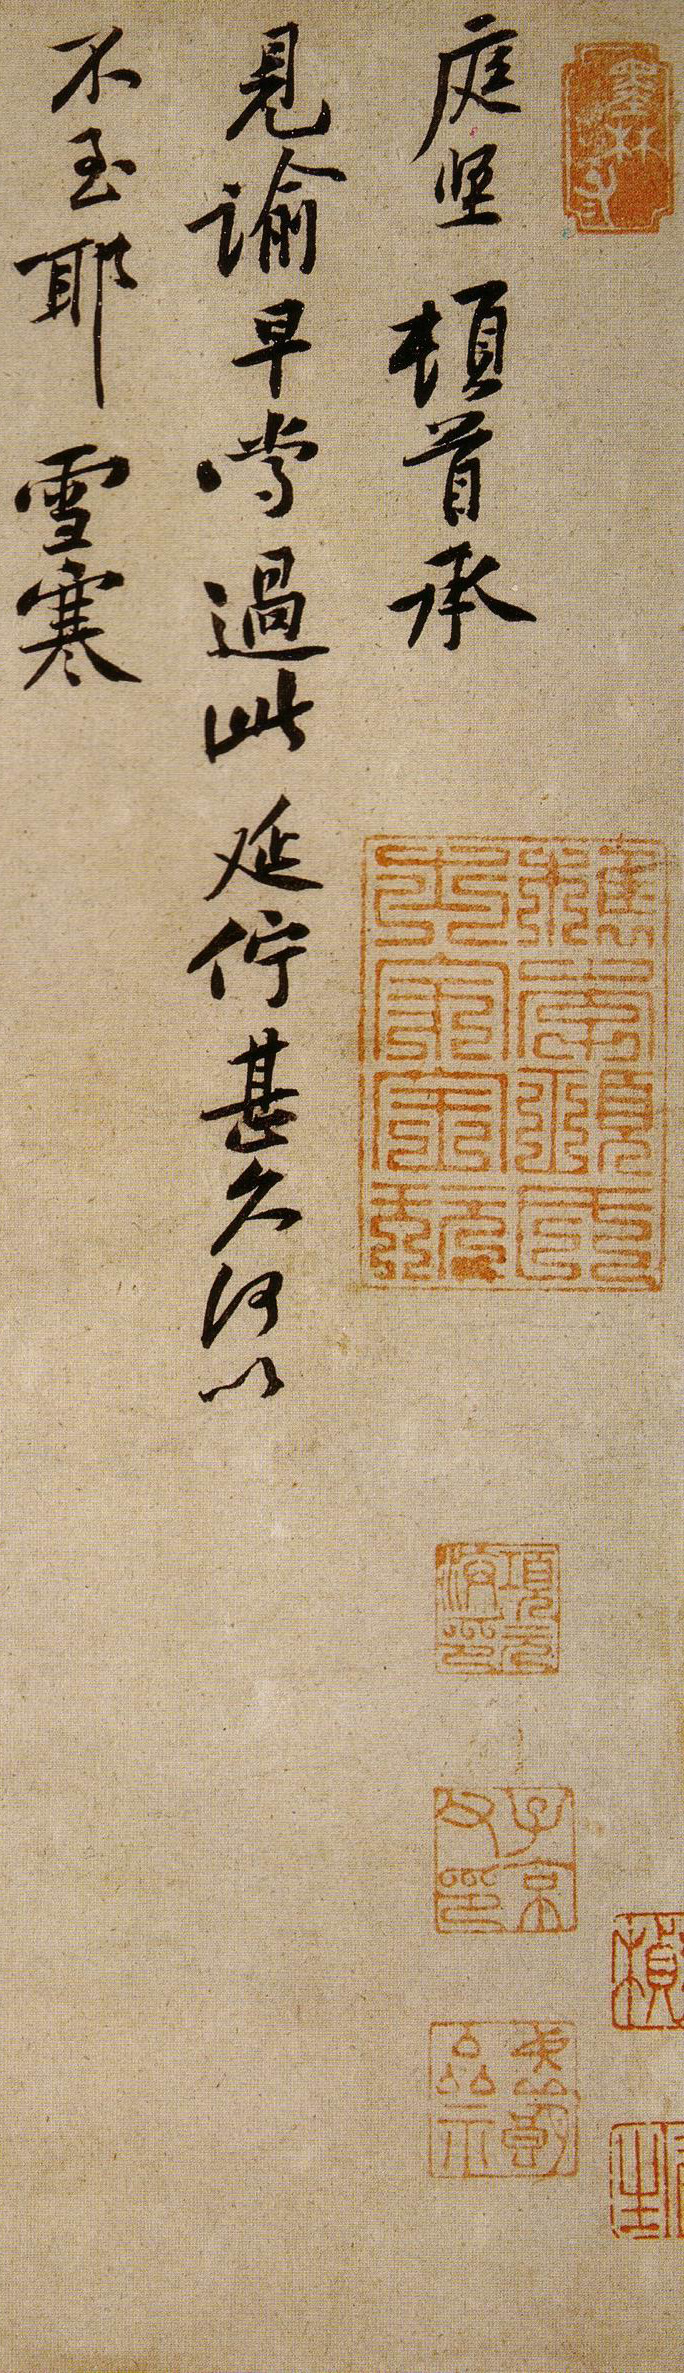 庭堅頓首承
見諭早嘗過此延佇甚久何以
不至耶雪寒
墨林
項元汴印
子京父印